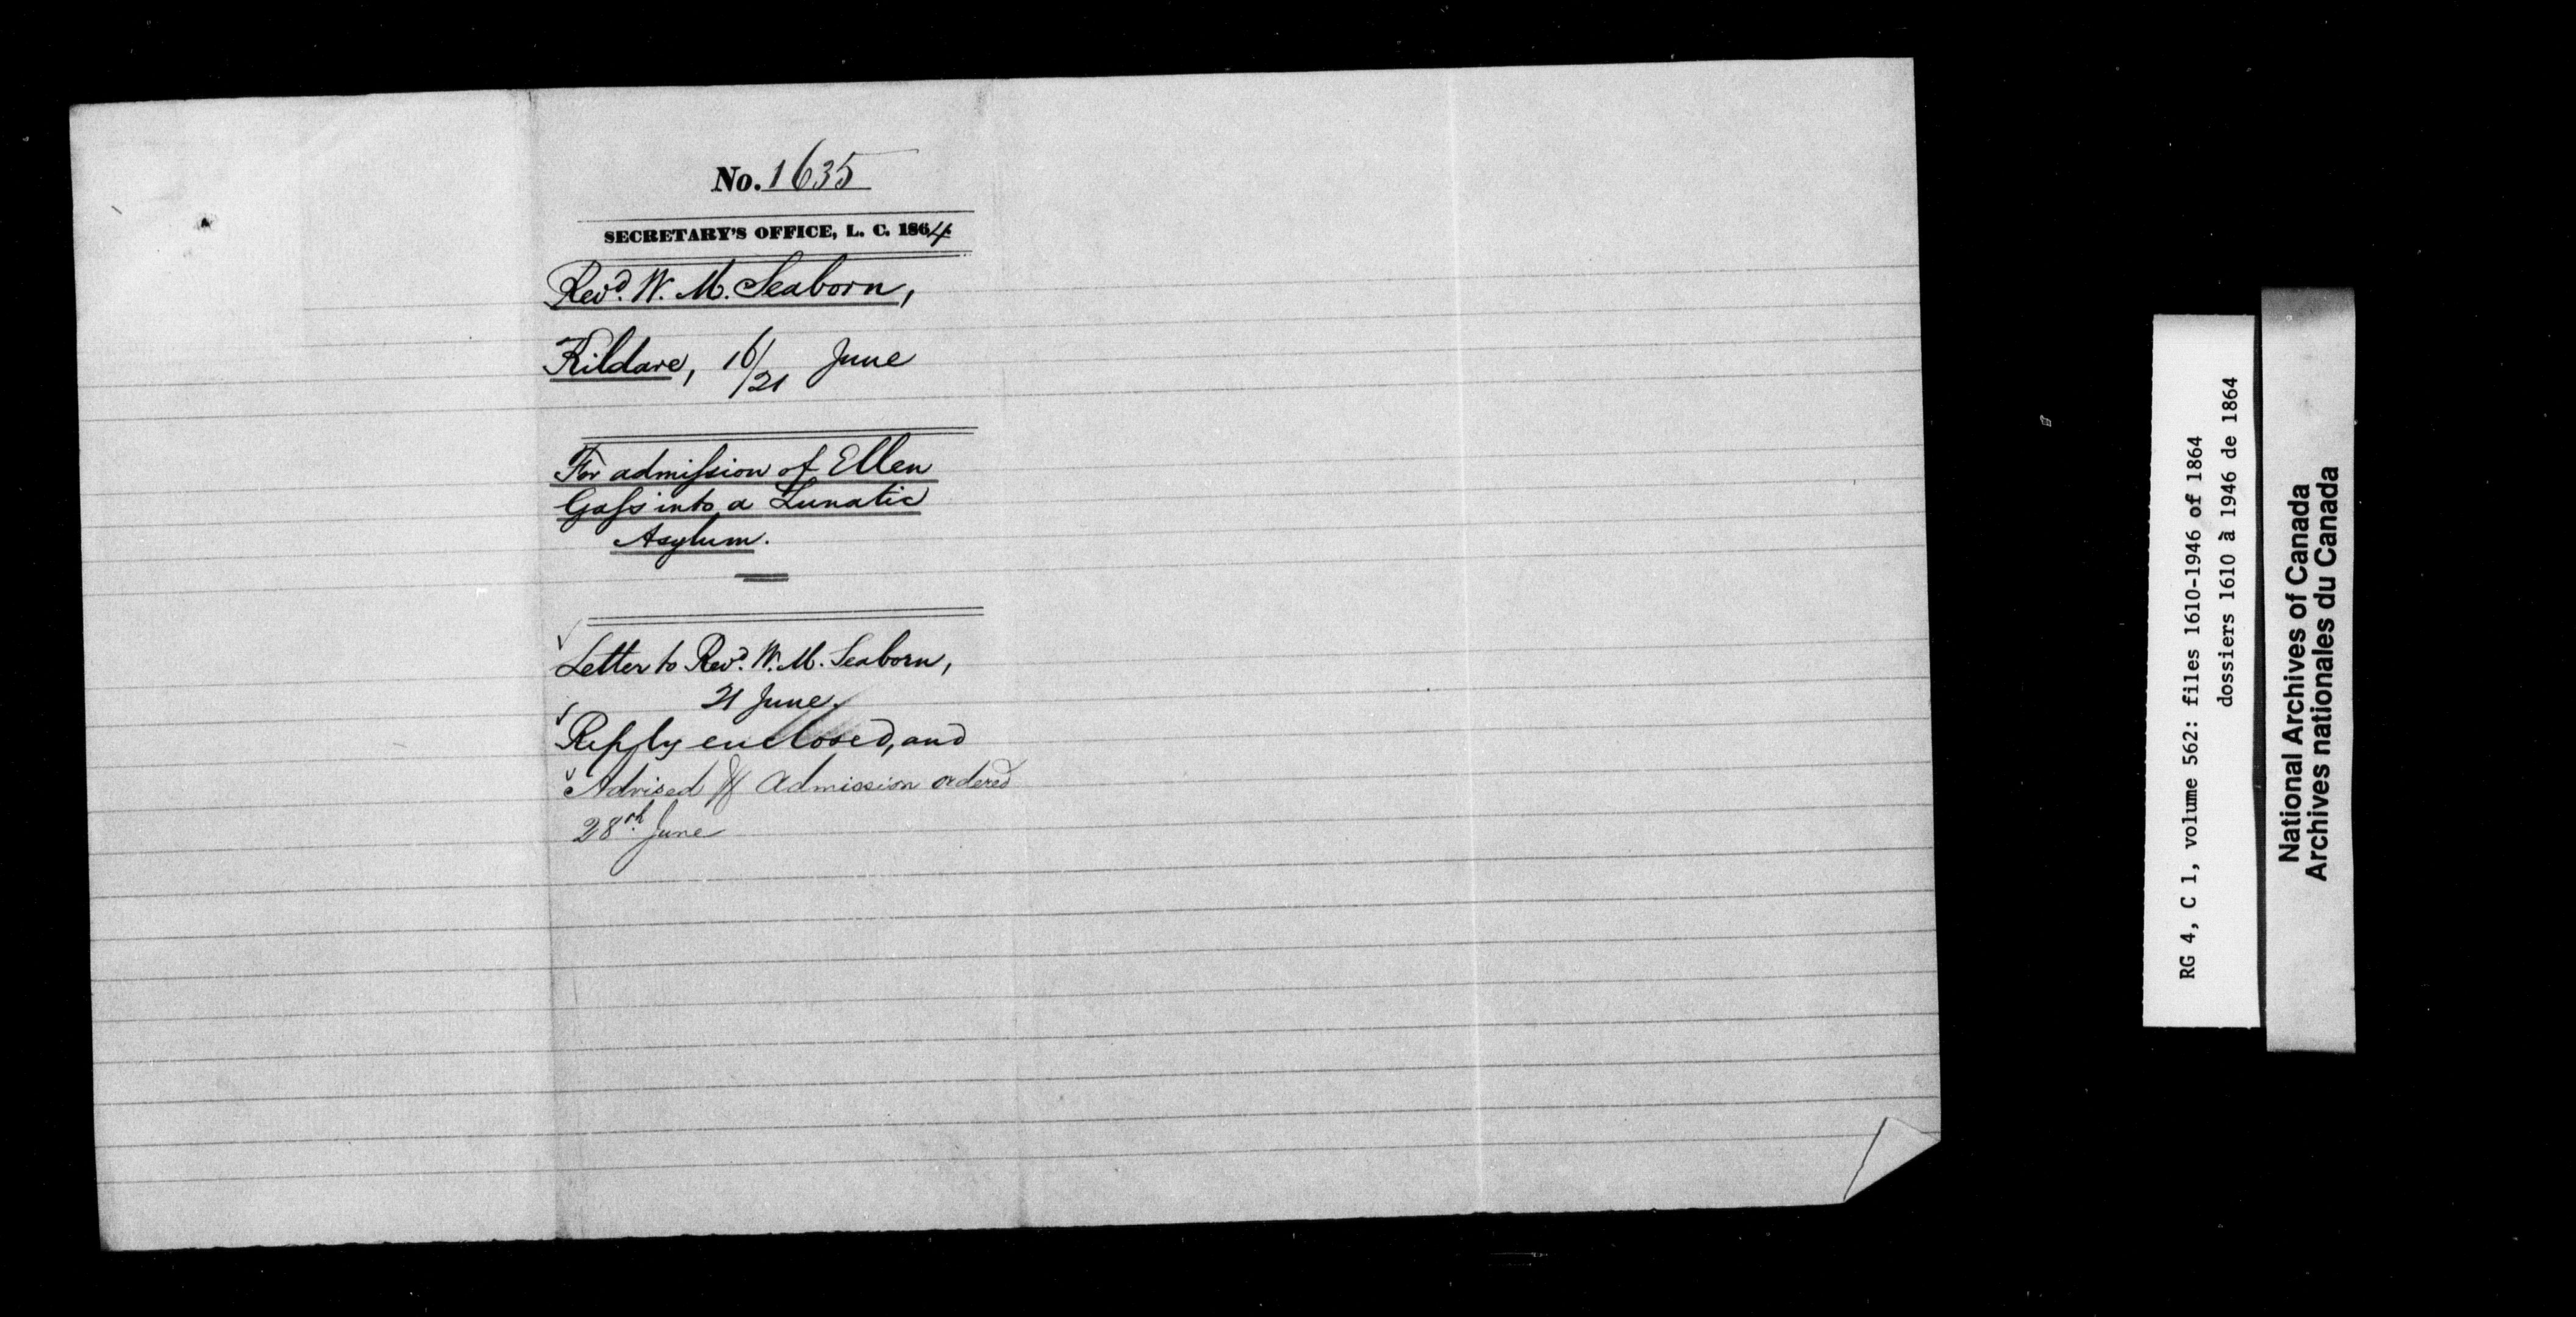 No. 1635
SECRETARY'S OFFICE, L. C. 1864
Revd. W. M. Seaborn,
Kildare, 16/21 June
For admission of Ellen
Gass into a Lunatic
Asylum.
Letter to Revd. W. M. Seaborn,
21 June.
Reply enclosed, and
Advised of admission ordered
28th June
RG 4, C 1, volume 562: files 1610-1946 of 1864
dossiers 1610 à 1946 de 1864
National Archives of Canada
Archives nationales du Canada